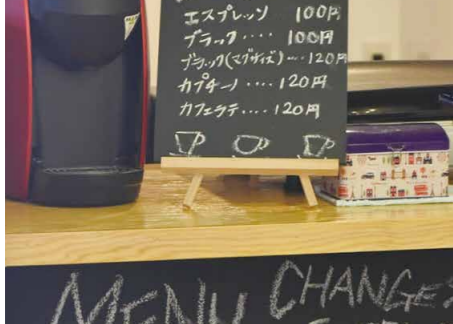 エスプレッソ 100円
ブラック‥‥ 100円
ブラック(マグサイズ)‥‥120円
カプチーノ‥‥120円
カフェラテ‥‥120円
MENU CHANGE